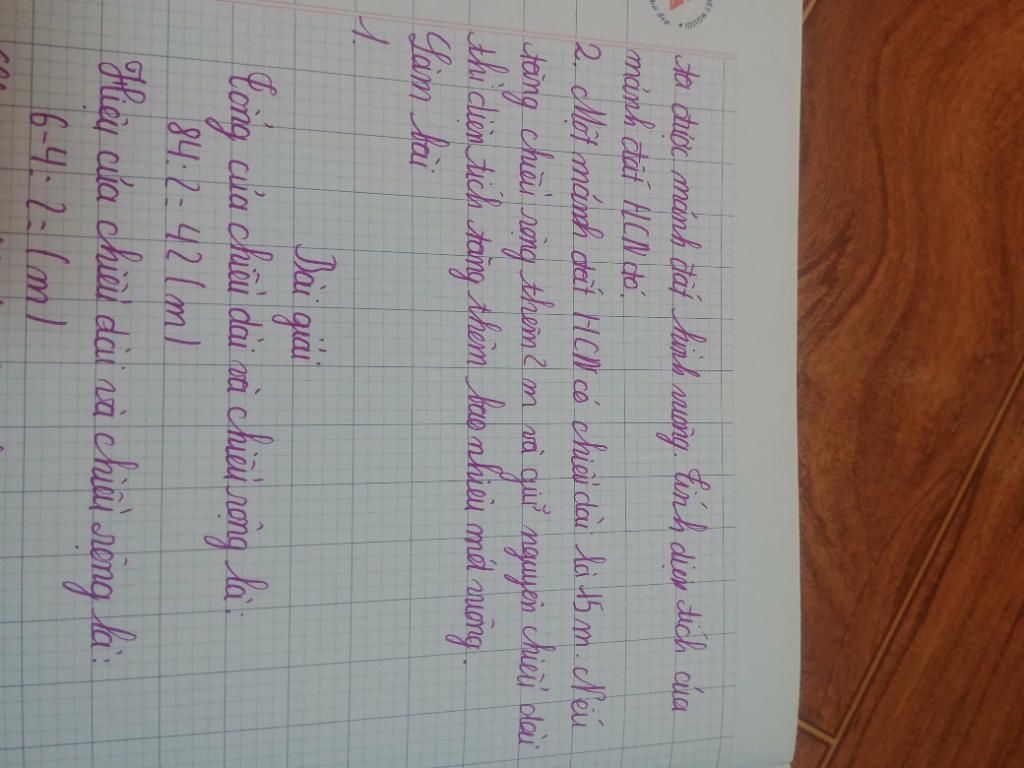 ta được mảnh đất hình vuông. Tính diện tích của
mảnh đất HCN đó.
2. Một mảnh đất HCN có chiều dài là 15 m. Nếu
tăng chiều rộng thêm 2 m và giữ nguyên chiều dài
thì diện tích tăng thêm bao nhiêu mét vuông.
Làm bài
1.
Bài giải
Tổng của chiều dài và chiều rộng là:
84:2= 42 (m)
Hiệu của chiều dài và chiều rộng là:
6-4= 2= (m)